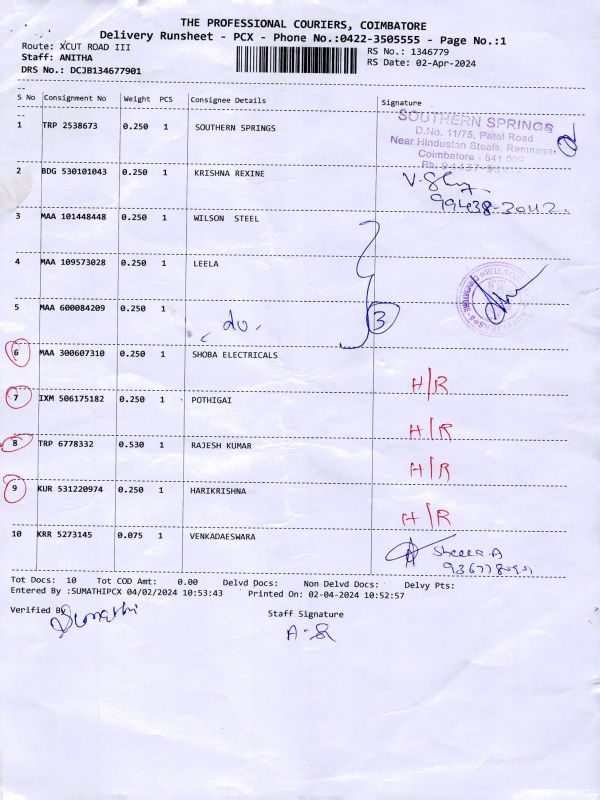 THE PROFESSIONAL COURIERS, COIMBATORE
Delivery Runsheet - PCX - Phone No.:0422-3505555 - Page No.:1
Route: XCUT ROAD III RS No.: 1346779
Staff: ANITHA RS Date: 02-Apr-2024
DRS No.: DCJB134677901
S No Consignment No Weight PCS Consignee Details Signature
1 TRP 2538673 0.250 1 SOUTHERN SPRINGS
SOUTHERN SPRINGS
D.No. 11/75, Patel Road
Near Hindustan Steels, Ramnagar
Coimbatore - 641 009
2 BDG 530101043 0.250 1 KRISHNA REXINE
99438-3042.
3 MAA 101448448 0.250 1 WILSON STEEL
4 MAA 109573028 0.250 1 LEELA
5 MAA 600084209 0.250 1
do. 3
6 MAA 300607310 0.250 1 SHOBA ELECTRICALS
H/R
7 IXM 506175182 0.250 1 POTHIGAI
H/R
8 TRP 6778332 0.530 1 RAJESH KUMAR
H/R
9 KUR 531220974 0.250 1 HARIKRISHNA
H/R
10 KRR 5273145 0.075 1 VENKADAESWARA
Tot Docs: 10 Tot COD Amt: 0.00 Delvd Docs: Non Delvd Docs: Delvy Pts:
Entered By :SUMATHIPCX 04/02/2024 10:53:43 Printed On: 02-04-2024 10:52:57
Verified By Staff Signature
Sumathi